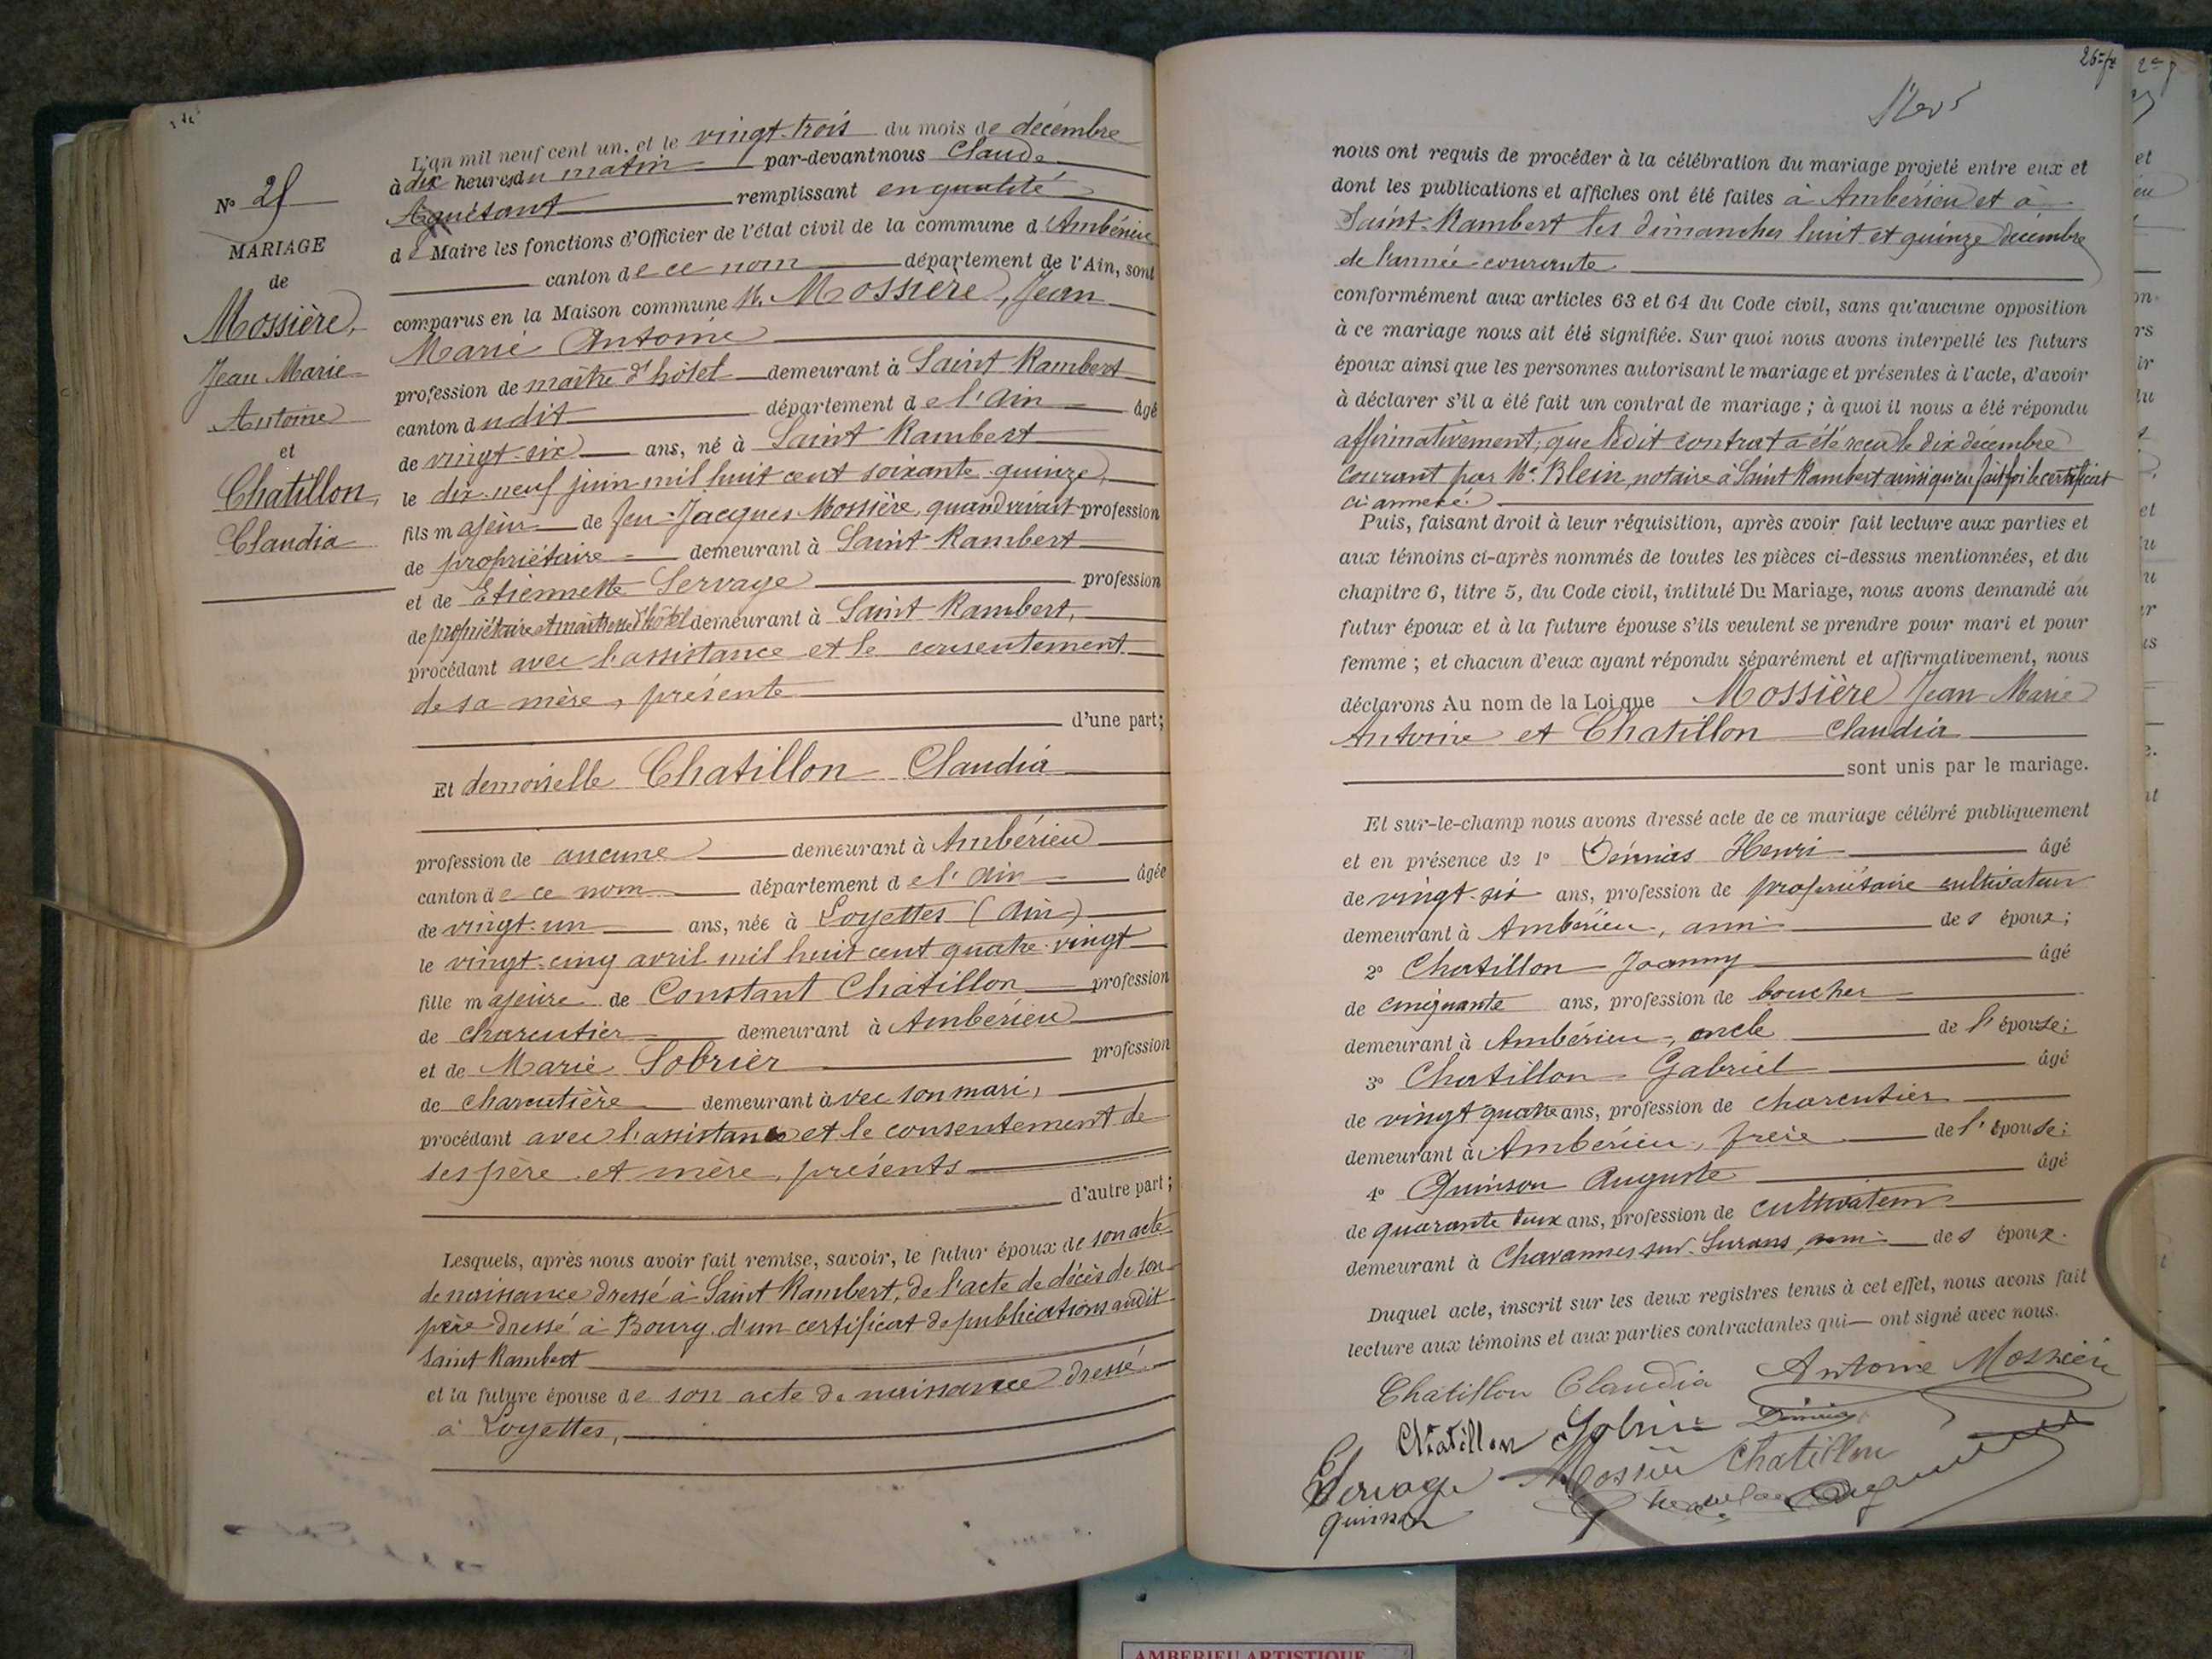 N° 25
MARIAGE
de
Mossière,
Jean Marie
Antoine
et
Chatillon,
Claudia
L'an mil neuf cent un, et le vingt-trois du mois de décembre
à dix heures du matin par-devant nous Claude
remplissant en qualité
de Maire les fonctions d'Officier de l'état civil de la commune d'Ambérieu
canton de ce nom département de l'Ain, sont
comparus en la Maison commune M. Mossière, Jean
Marie Antoine
profession de maître d'hôtel demeurant à Saint Rambert
canton dudit département de l'Ain âgé
de vingt-six ans, né à Saint Rambert
le dix-neuf juin mil huit cent soixante-quinze,
fils majeur de feu Jacques Mossière, quand vivait profession
de propriétaire demeurant à Saint-Rambert
et de Etiennette Servage profession
de propriétaire et maîtresse d'hôtel demeurant à Saint-Rambert,
procédant avec l'assistance et le consentement
de sa mère, présente
d'une part;
Et demoiselle Chatillon Claudia
profession de aucune demeurant à Ambérieu
canton de ce nom département de l'Ain âgée
de vingt-un ans, née à Loyettes (Ain)
le vingt-cinq avril mil huit cent quatre-vingt
fille majeure de Constant Chatillon profession
de charcutier demeurant à Ambérieu
et de Marie Sobrier profession
de charcutière demeurant avec son mari,
procédant avec l'assistance et le consentement de
ses père et mère, présents
d'autre part;
Lesquels, après nous avoir fait remise, savoir, le futur époux de son acte
de naissance dressé à Saint Rambert, de l'acte de décès de son
père dressé à Bourg, d'un certificat de publications audit
Saint Rambert
et la future épouse de son acte de naissance dressé
à Loyettes,
nous ont requis de procéder à la célébration du mariage projeté entre eux et
dont les publications et affiches ont été faites à Ambérieu et à
Saint-Rambert les dimanches huit et quinze décembre
de l'année courante
conformément aux articles 63 et 64 du Code civil, sans qu'aucune opposition
à ce mariage nous ait été signifiée. Sur quoi nous avons interpellé les futurs
époux ainsi que les personnes autorisant le mariage et présentes à l'acte, d'avoir
à déclarer s'il a été fait un contrat de mariage; à quoi il nous a été répondu
affirmativement, que ledit contrat a été reçu le dix décembre
courant par Me Blein, notaire à Saint Rambert ainsi qu'en fait foi le certificat
ci annexé.
Puis, faisant droit à leur réquisition, après avoir fait lecture aux parties et
aux témoins ci-après nommés de toutes les pièces ci-dessus mentionnées, et du
chapitre 6, titre 5, du Code civil, intitulé Du Mariage, nous avons demandé au
futur époux et à la future épouse s'ils veulent se prendre pour mari et pour
femme; et chacun d'eux ayant répondu séparément et affirmativement, nous
déclarons Au nom de la Loi que Mossière Jean Marie
Antoine et Chatillon Claudia
sont unis par le mariage.
Et sur-le-champ nous avons dressé acte de ce mariage célébré publiquement
et en présence de 1° Henri âgé
de vingt-six ans, profession de propriétaire cultivateur
demeurant à Ambérieu, ami des époux;
2° Chatillon Joanny âgé
de cinquante ans, profession de boucher
demeurant à Ambérieu, oncle de l'épouse;
3° Chatillon Gabriel âgé
de vingt quatre ans, profession de charcutier
demeurant à Ambérieu, frère de l'épouse;
4° Quinson Auguste âgé
de quarante deux ans, profession de cultivateur
demeurant à Chavannes sur Surans, ami des époux.
Duquel acte, inscrit sur les deux registres tenus à cet effet, nous avons fait
lecture aux témoins et aux parties contractantes qui ont signé avec nous.
Chatillon Claudia Antoine Mossière
Chatillon Sobrier
Servage Mossière Chatillon
Quinson
AMBERIEU ARTISTIQUE